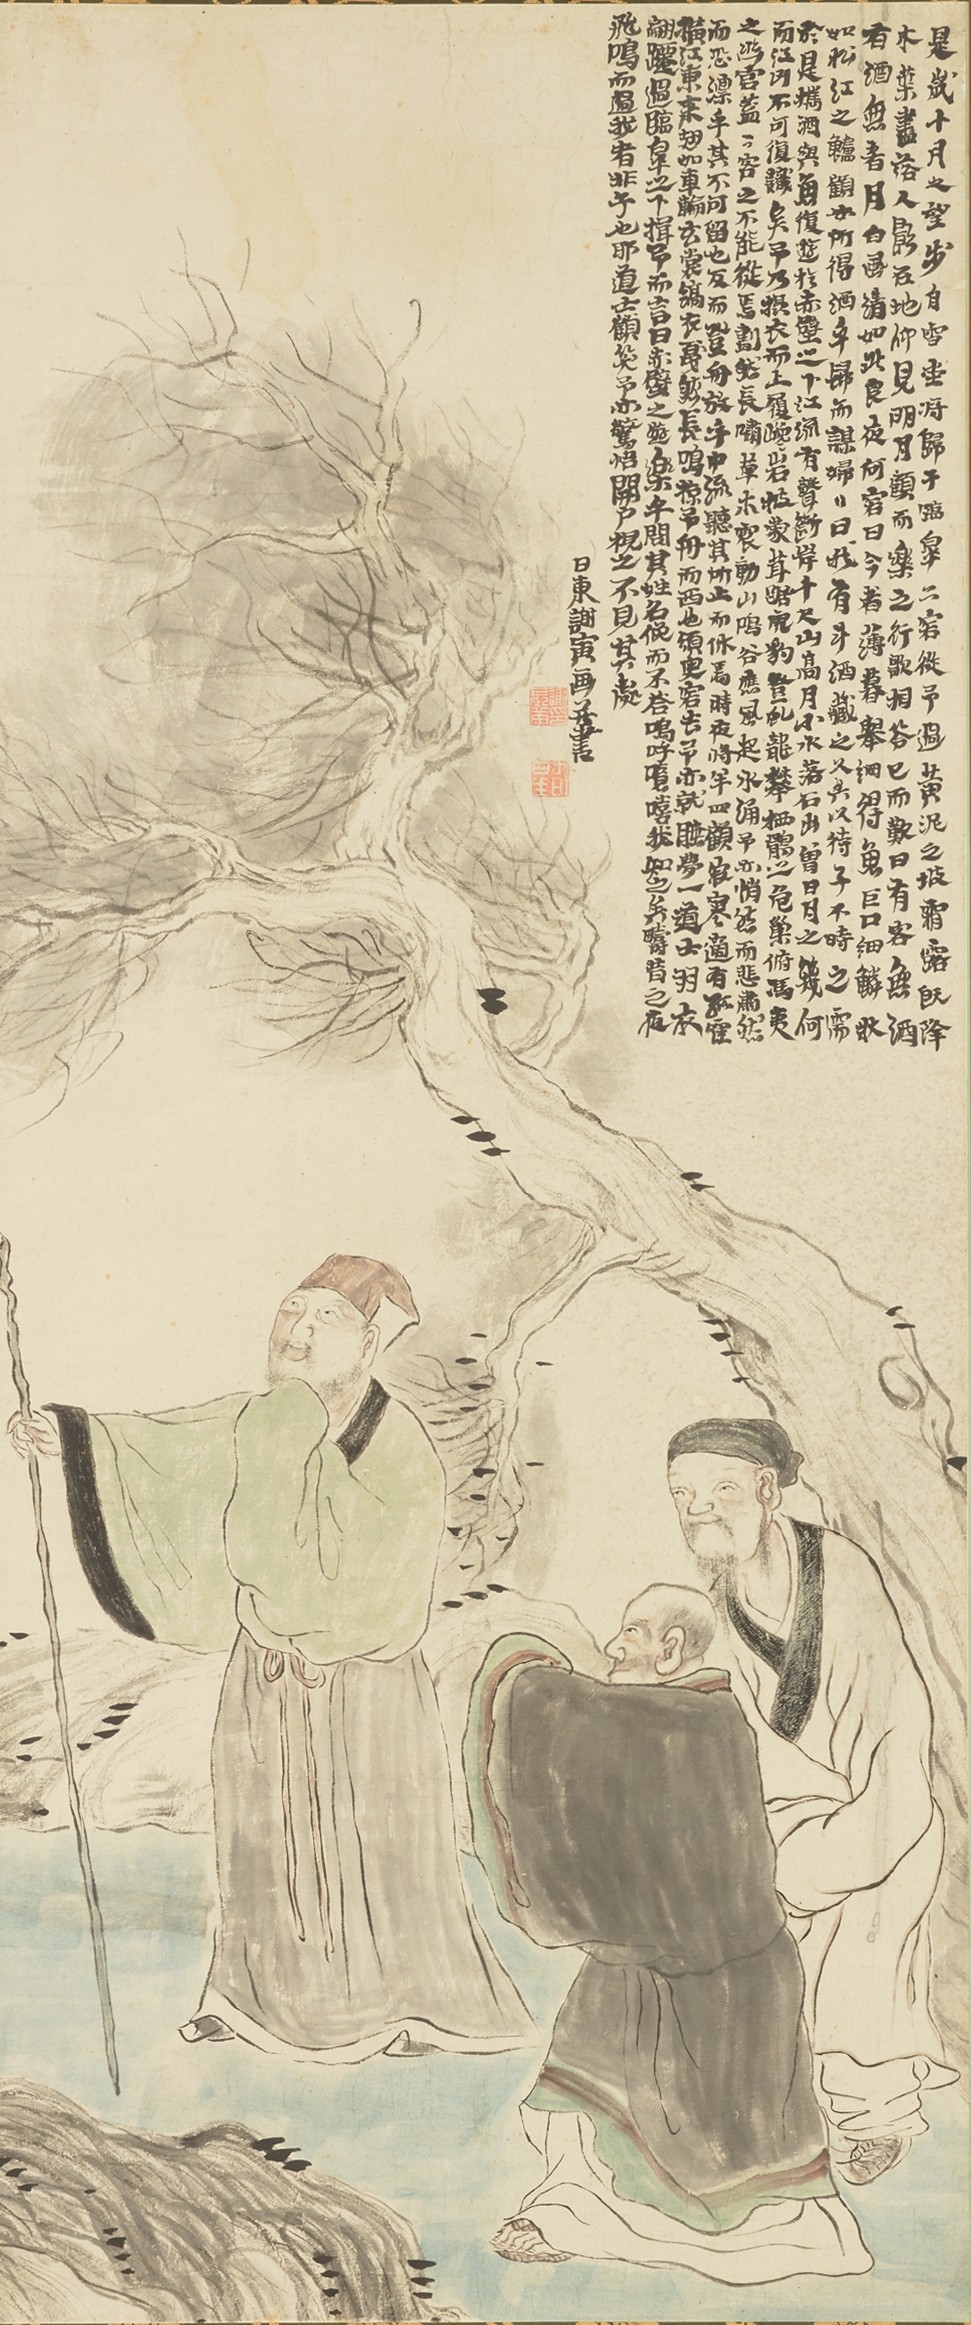 是歳十月之望步自雪堂将歸于臨皐二客從予過黄泥之坂霜露既降
木葉盡落人影在地仰見明月顧而樂之行歌相荅已而歎曰有客無酒
有酒無肴月白風清如此良夜何客曰今者薄暮舉網得魚巨口細鱗状
如松江之鱸顧安所得酒乎歸而謀婦〻曰我有斗酒藏之久矣以待子不時之需
於是攜酒與魚復遊於赤壁之下江流有聲斷岸千尺山高月小水落石出曽日月之幾何
而江山不可復識矣予乃攝衣而上履巉岩披蒙茸踞虎豹登虬龍攀栖鶻之危巢俯馮夷
之幽宮蓋二客之不能從焉劃然長嘯草木震動山鳴谷應風起水涌予亦悄然而悲肅然
而恐凛乎其不可留也反而登舟放乎中流聽其所止而休焉時夜將半四顧寂寥適有孤隺
橫江東来翅如車輪玄裳縞衣戛然長鳴掠予舟而西也須臾客去予亦就睡夢一道士羽衣
翩躚過臨皐之下揖予而言曰赤壁之遊樂乎問其姓名俛而不荅嗚呼噫嘻我知之矣疇昔之夜
飛鳴而過我者非子也耶道士顧笑予亦驚悟開户視之不見其處
日東謝寅画并書